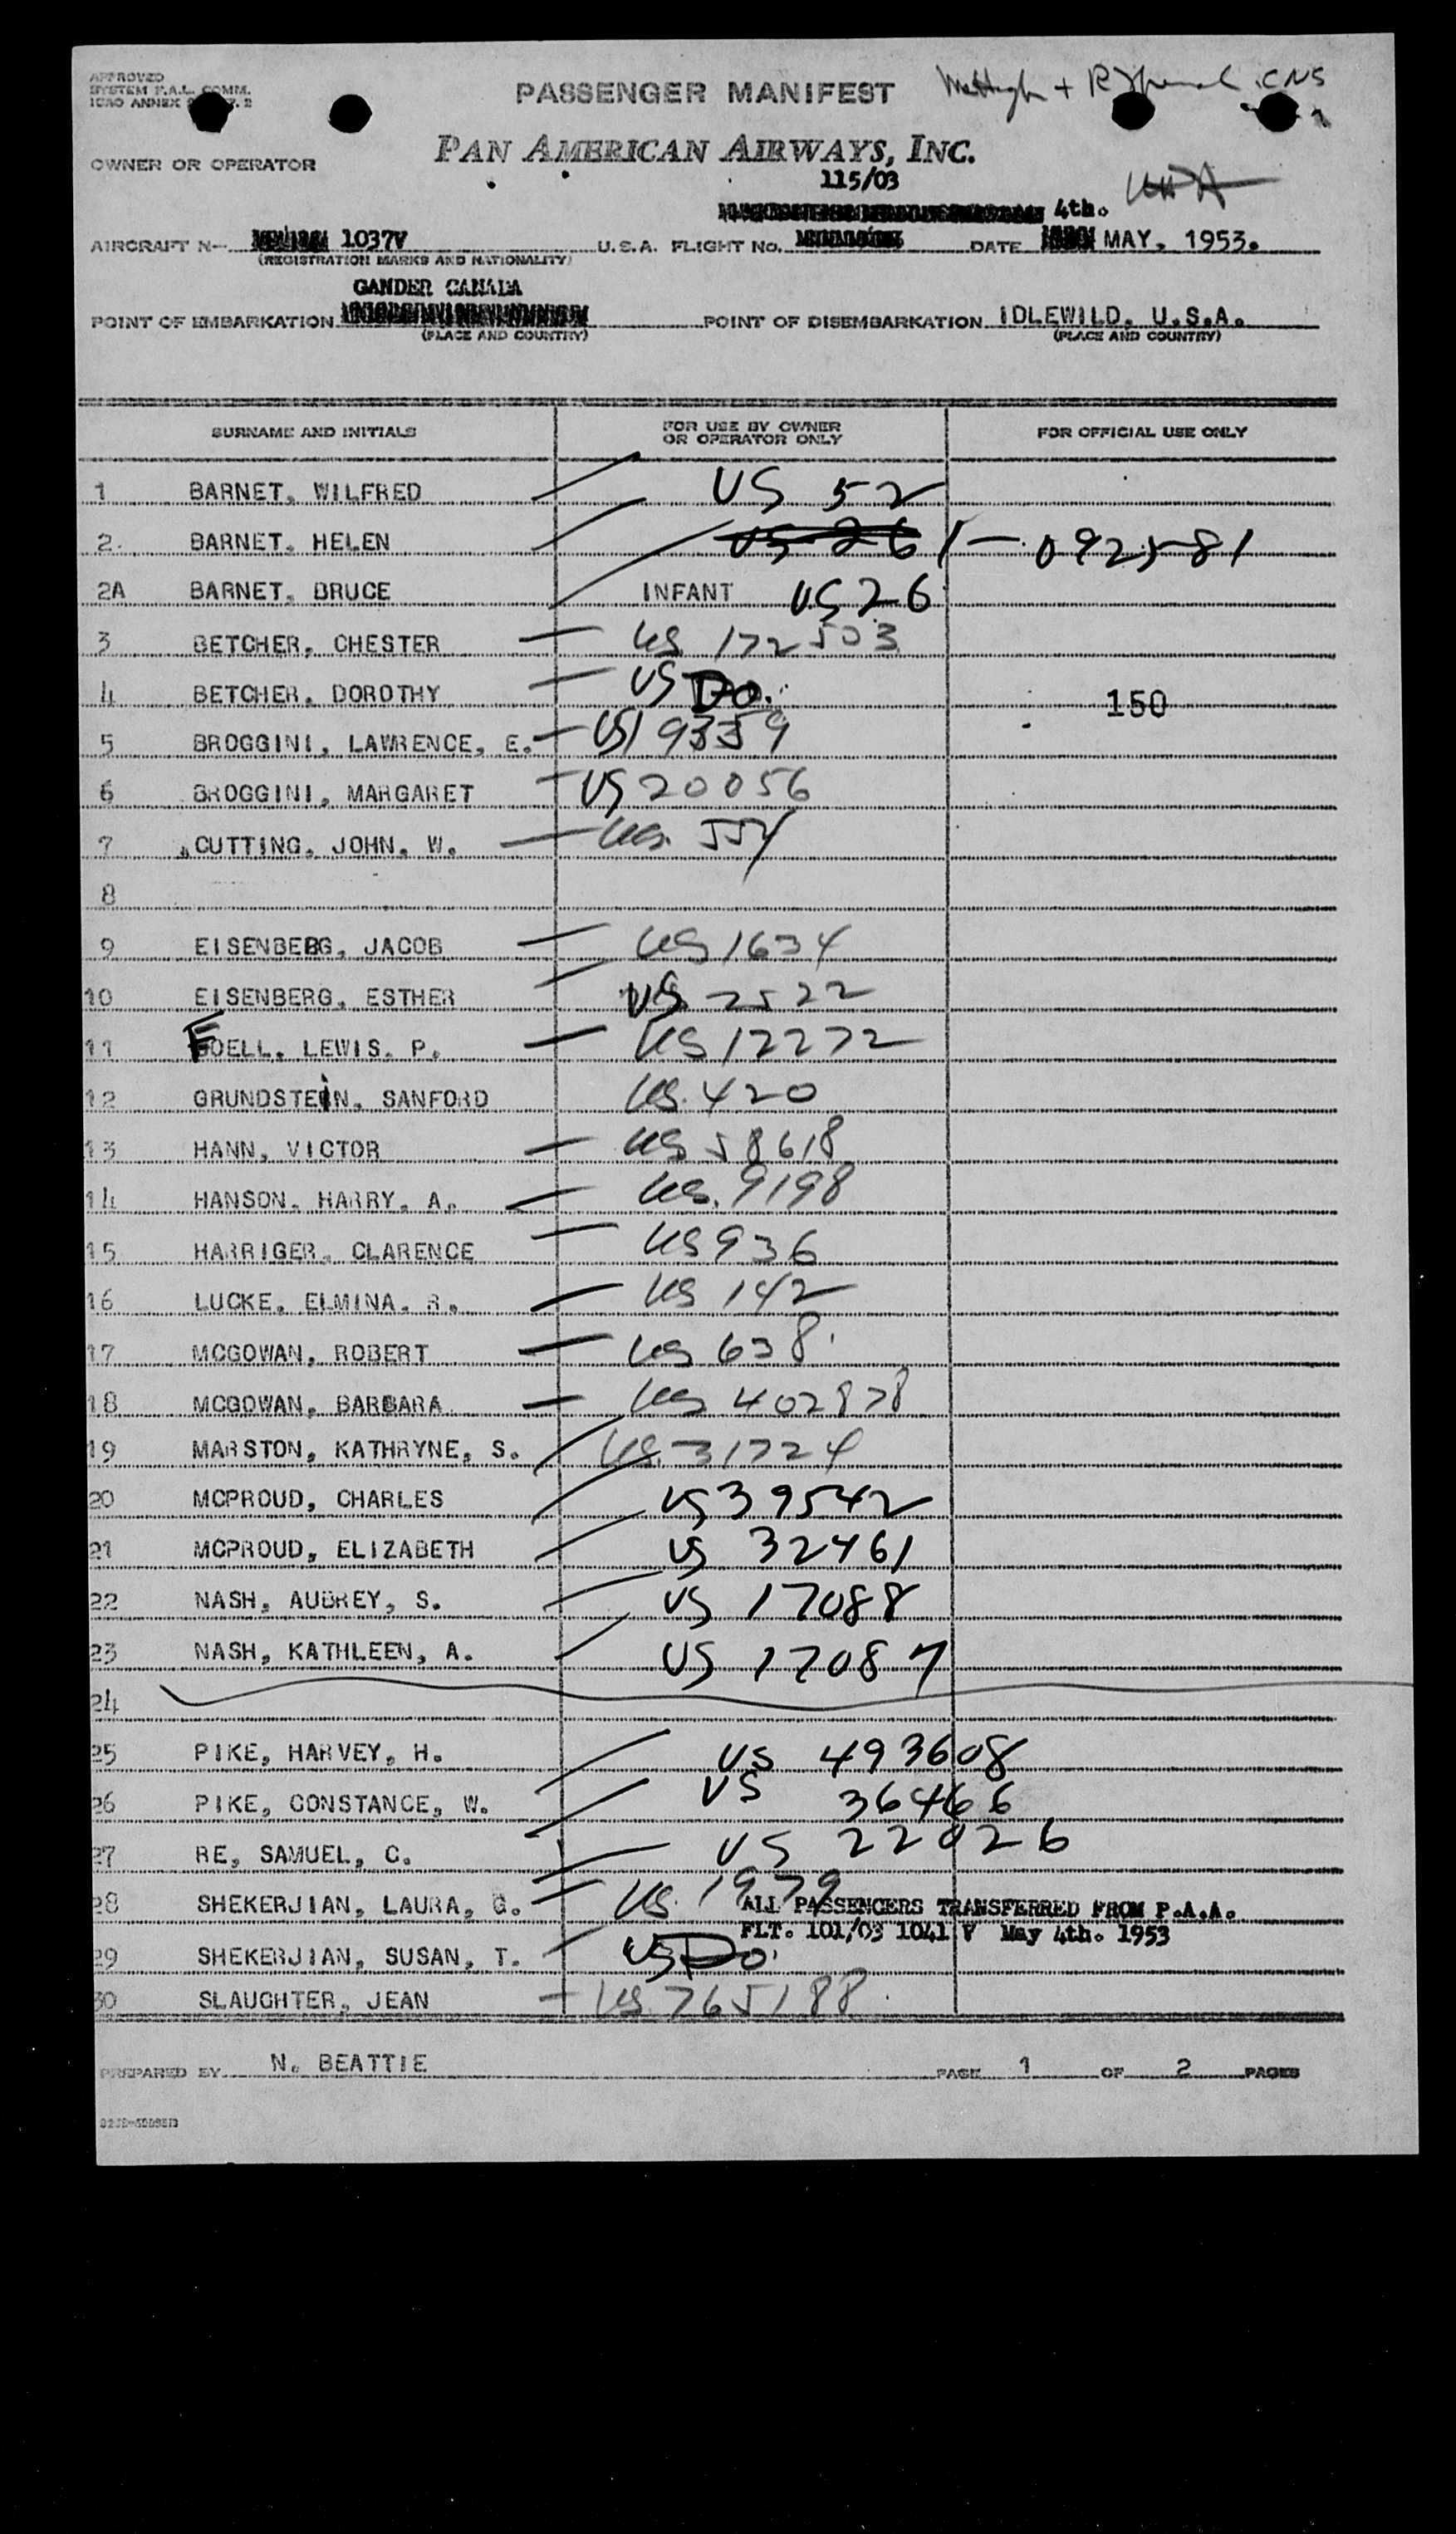 APPROVED
SYSTEM F.A.L. COMM.
ICAO ANNEX
PASSENGER MANIFEST
PAN AMERICAN AIRWAYS, INC.
OWNER OR OPERATOR
115/03
4th.
AIRCRAFT N- 1037V U.S.A. FLIGHT No. DATE MAY, 1953.
(REGISTRATION MARKS AND NATIONALITY)
GANDER CANADA
POINT OF EMBARKATION POINT OF DISEMBARKATION IDLEWILD, U.S.A.
(PLACE AND COUNTRY) (PLACE AND COUNTRY)
SURNAME AND INITIALS FOR USE BY OWNER OR OPERATOR ONLY FOR OFFICIAL USE ONLY
1 BARNET, WILFRED US 52
2. BARNET, HELEN US 26 1-092581
2A BARNET, BRUCE INFANT US 26
3 BETCHER, CHESTER US 172503
4 BETCHER, DOROTHY US Do. 150
5 BROGGINI, LAWRENCE, E. US 19359
6 BROGGINI, MARGARET US 20056
7 CUTTING, JOHN, W. US 554
8
9 EISENBERG, JACOB US 1634
10 EISENBERG, ESTHER US 2522
11 FOELL, LEWIS, P. US 12272
12 GRUNDSTEIN, SANFORD US 420
13 HANN, VICTOR US 58618
14 HANSON, HARRY, A. US 9198
15 HARRIGER, CLARENCE US 936
16 LUCKE, ELMINA, R. US 142
17 MCGOWAN, ROBERT US 638
18 MCGOWAN, BARBARA US 402878
19 MARSTON, KATHRYNE, S. US 31724
20 MCPROUD, CHARLES US 39542
21 MCPROUD, ELIZABETH US 32461
22 NASH, AUBREY, S. US 17088
23 NASH, KATHLEEN, A. US 17087
24
25 PIKE, HARVEY, H. US 493608
26 PIKE, CONSTANCE, W. US 36466
27 RE, SAMUEL, C. US 22026
28 SHEKERJIAN, LAURA, G. US 1979
ALL PASSENGERS TRANSFERRED FROM P.A.A.
FLT. 101/03 1041 V May 4th. 1953
29 SHEKERJIAN, SUSAN, T. US Do.
30 SLAUGHTER, JEAN US 765188
PREPARED BY N. BEATTIE PAGE 1 OF 2 PAGES